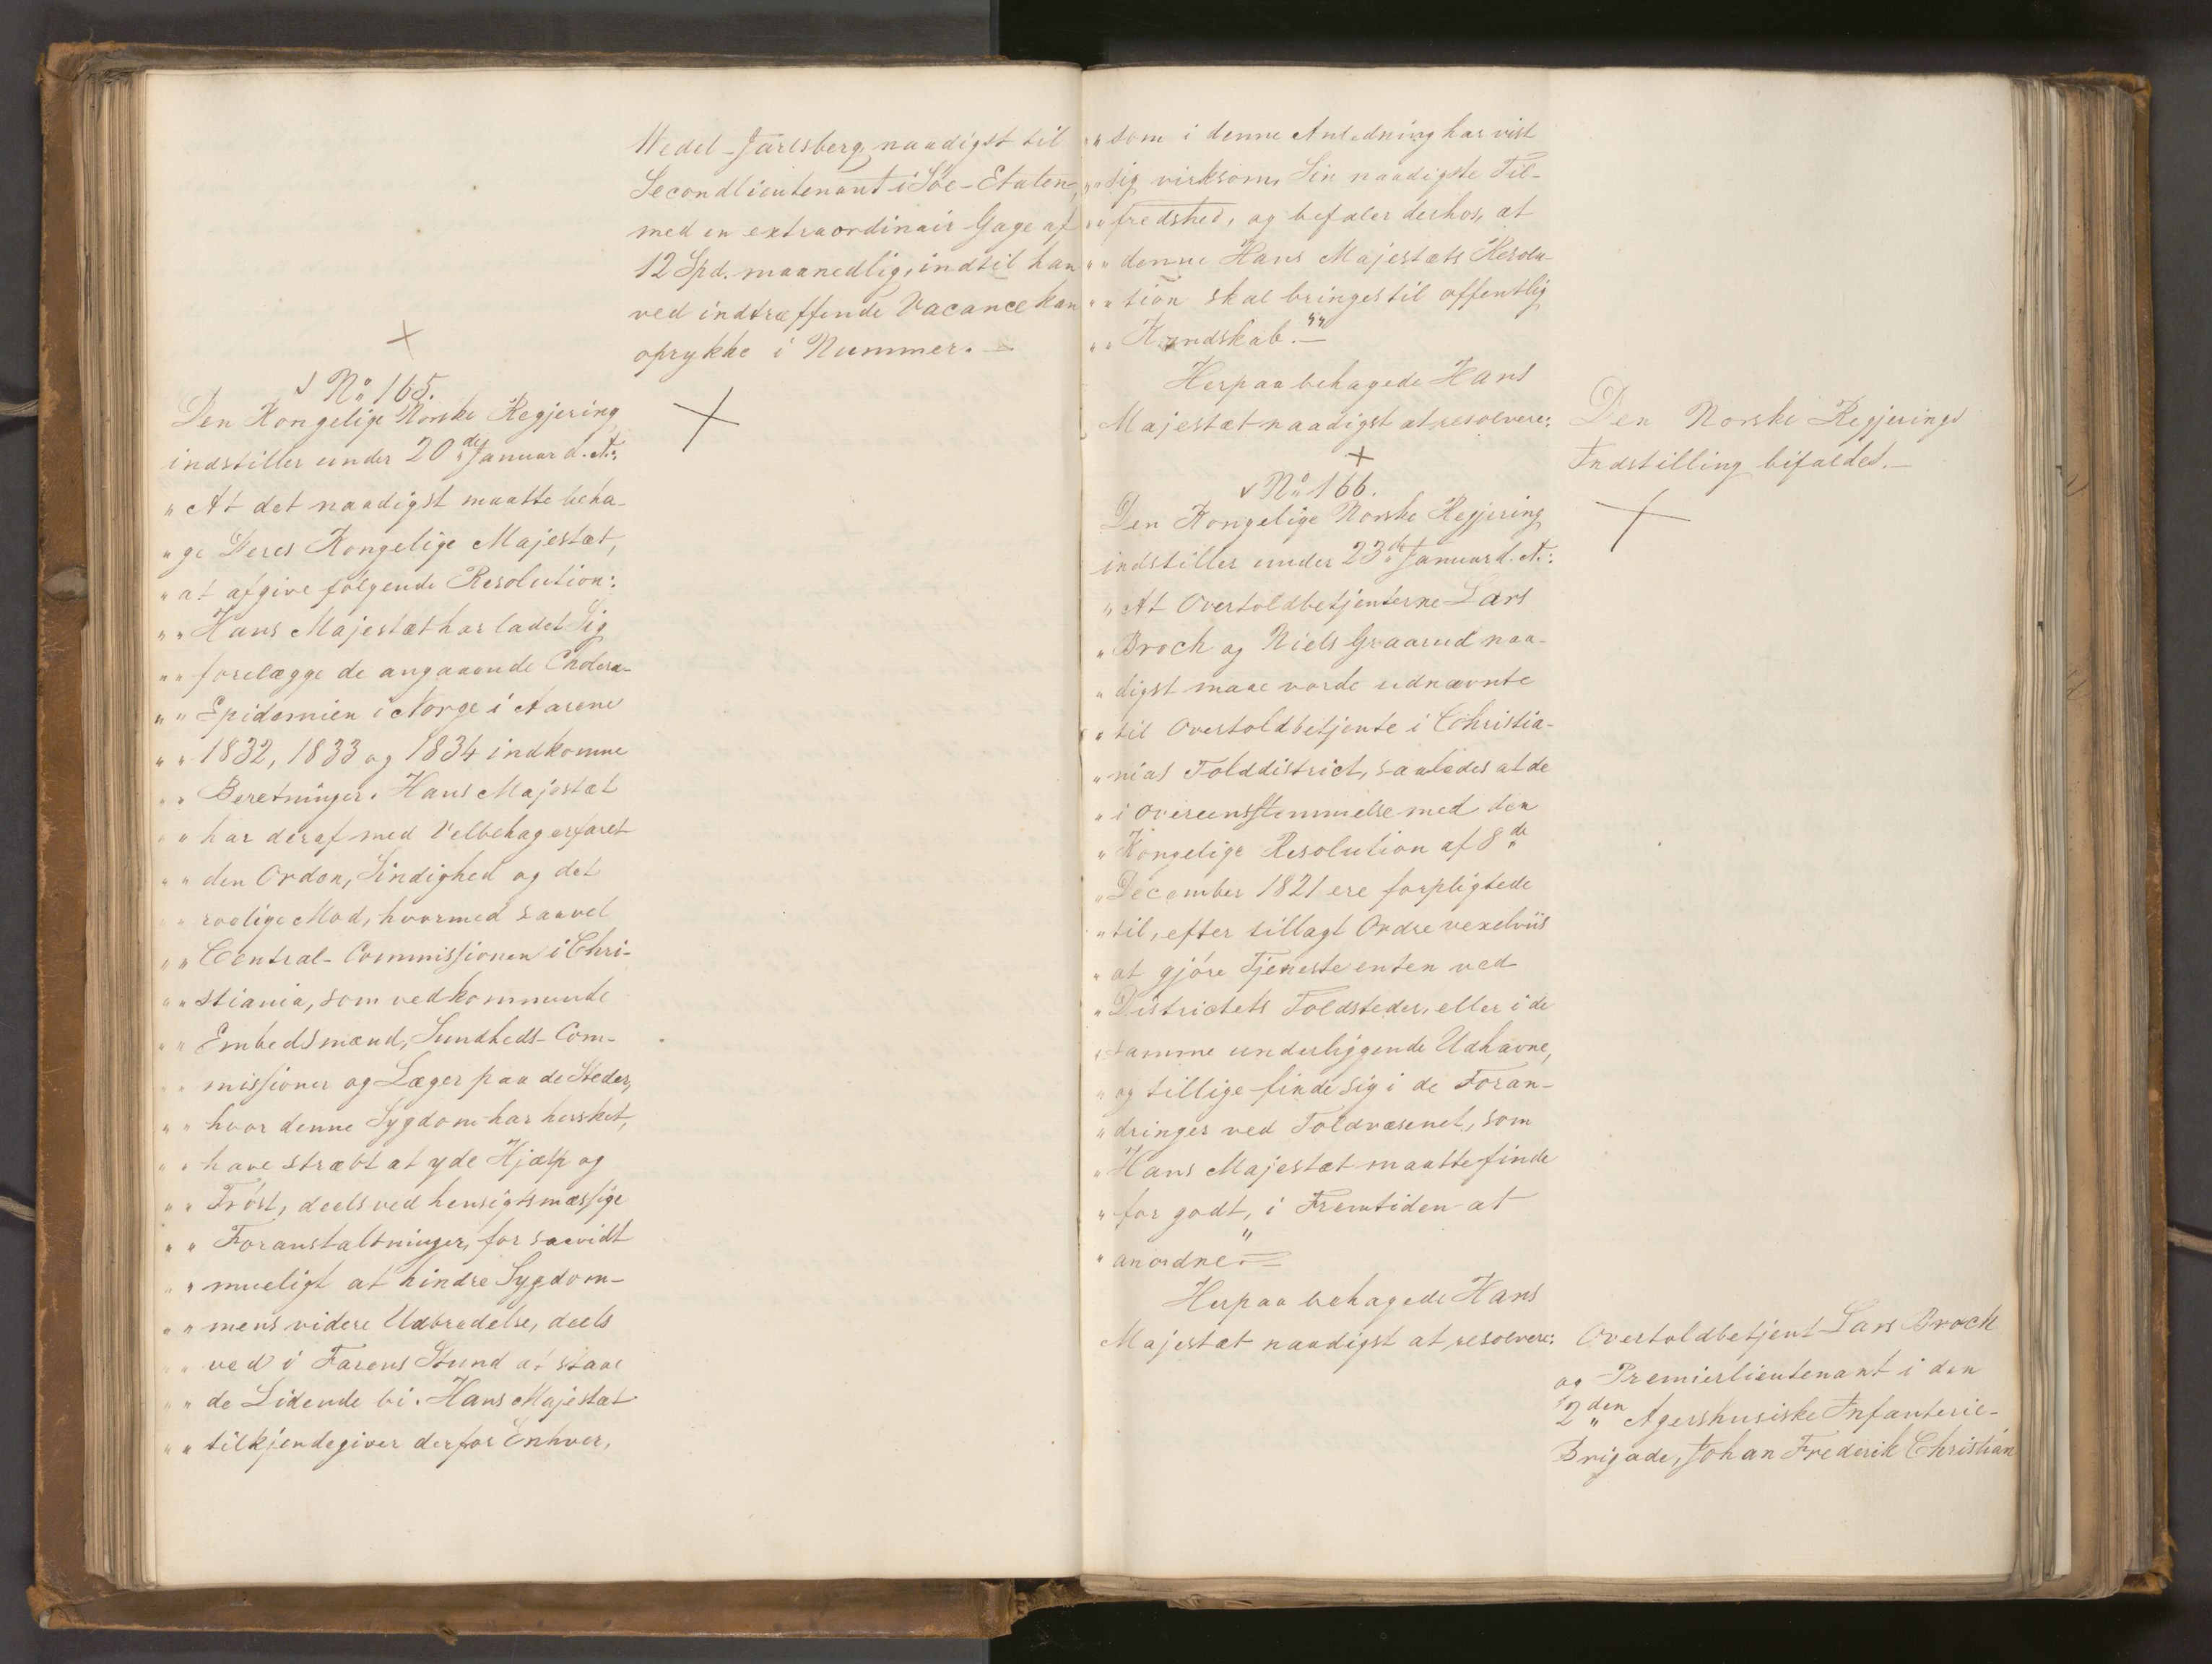 Wedel-Jarlsberg, naadigst til
Secondlieutenant i Söe-Etaten,
med en extraordinair Gage af
12 Spd. maanedlig, indtil han
ved indtræffende Vacance kan
oprykke i Nummer. —
No 165.
Den Kongelige Norske Regjering
indstiller under 20de Januar d. A.:
" At det naadigst maatte beha-
" ge Deres Kongelige Majestæt,
" at afgive følgende Resolution:
" " Hans Majestæt har ladet Sig
" " forelægge de angaaende Cholera-
" " Epidemien i Norge i Aarene
" " 1832, 1833 og 1834 indkomne
" " Beretninger. Hans Majestæt
" " har deraf med Velbehag erfaret
" " den Orden, Sindighed og det
" " roelige Mod, hvormed saavel
" " Central-Commissionen i Chri-
" " stiania, som vedkommende
" " Embedsmænd, Sundheds-Com-
" " missioner og Læger paa de Steder,
" " hvor denne Sygdom har hersket,
" " have stræbt at yde Hjælp og
" " Tröst, deels ved hensigtsmæssige
" " Foranstaltninger, for saavidt
" " mueligt at hindre Sygdom-
" " mens videre Udbredelse, deels
" " ved i Farens Stund at staae
" " de Lidende bi. Hans Majestæt
" " tilkjendegiver derfor Enhver,
" " som i denne Anledning har vist
" " sig virksom, Sin naadigste Til-
" " fredshed, og befaler derhos, at
" " denne Hans Majestæts Resolu-
" " tion skal bringes til offentlig
" " Kundskab." " —
Herpaa behagede Hans
Majestæt naadigst at resolvere:
Den Norske Regjerings
Indstilling bifaldes. —
No 166.
Den Kongelige Norske Regjering
indstiller under 23de Januar d. A.:
" At Overtoldbetjenterne Lars
" Broch og Niels Graarud naa-
" digst maae vorde udnævnte
" til Overtoldbetjente i Christia-
" nias Tolddistrict, saaledes at de
" i Overeensstemmelse med den
" Kongelige Resolution af 8de
" December 1821 ere forpligtede
" til, efter tillagt Ordre vexelviis
" at gjöre Tjeneste enten ved
" Districtets Toldsteder, eller i de
" samme underliggende Udhavne,
" og tillige finde sig i de Foran-
" dringer ved Toldvæsenet, som
" Hans Majestæt maatte finde
" for godt, i Fremtiden at
" anordne." —
Herpaa behagede Hans
Majestæt naadigst at resolvere:
Overtoldbetjent Lars Broch
og Premierlieutenant i den
2den Agershusiske Infanterie-
Brigade, Johan Frederik Christian